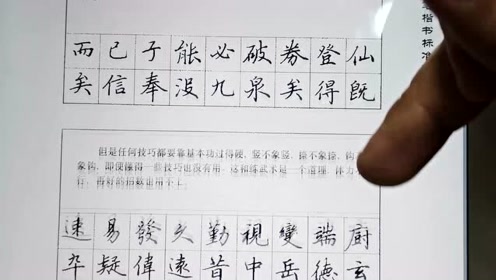 楷书标准
而已子能必破券登仙
矣信奉没九泉矣得既
但是任何技巧都要靠基本功过得硬，竖不象竖，横不象横，钩
象钩，即使懂得一些技巧也没有用。这和练武术是一个道理，体力不
行，再好的招数也用不上。
速易發久勤視變端厨
卒疑偉遠昔中岳德玄